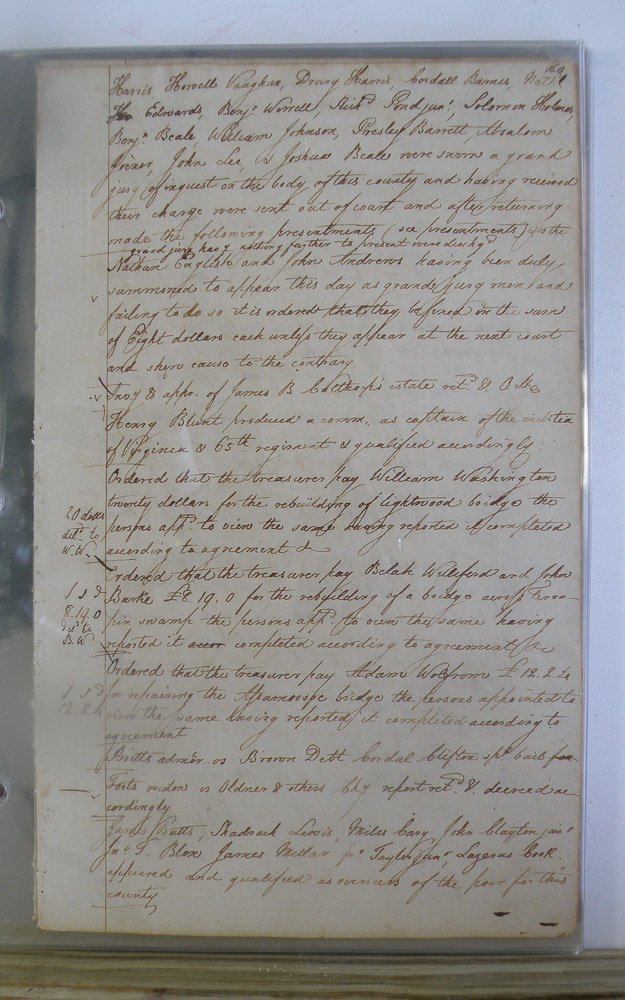 160
Harris Howell Vaughan, Drury Harris, Cordall Barnes, Nath.l
Edwards, Benj.n Worrell, Rich.d Pond jun.r, Solomon Holmes,
Benj.n Beale, William Johnson, Presley Barrett, Absalom
Joiner, John Lee, & Joshua Beale were sworn a grand
jury of inquest on the body of this county and having received
their charge were sent out of court and after returning
made the following presentments (see presentments) & the
grand jury hav.g nothing further to present were disch.d
Nathan English and John Andrews having been duly
summoned to appear this day as grand jury men and
failing to do so it is ordered that they be fined in the sum
of Eight dollars each unless they appear at the next court
and shew cause to the contrary
Inv.y & appr. of James B Calthorp's estate ret.d & O.
Henry Blunt produced a comm. as captain of the militia
of Virginia & 65th regiment & qualified accordingly
Ordered that the treasurer pay William Washington
twenty dollars for the rebuilding of lightwood bridge the
20 dolls
del.d to
W.W.
persons app.d to view the same having reported it completed
according to agreement &c
Ordered that the treasurer pay Belah Williford and John
Barke £8.19.0 for the rebuilding of a bridge across
8.14.0
B.W.
pin swamp the persons app.d to view the same having
reported it completed according to agreement &c
Ordered that the treasurer pay Adam Wolfrom £12.2.4
for repairing the Assamoosoc bridge the persons appointed to
12.2.4
view the same having reported it completed according to
agreement
Britts admor vs Brown Debt. Cordal Clifton sp.l bail
Forts vs Oldner & others Chy report ret.d & decreed ac
cordingly
James Butts, Shadrach Lewis, Miles Cary John Clayton jun.r
Jn.o T. Blow James Millar jr. Taylor jun.r Lazarus Cook
appeared and qualified as overseers of the poor for this
county